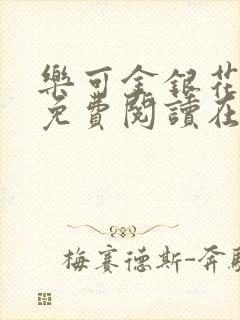 樂可金銀花
免費閱讀在
梅賽德斯-奔馳